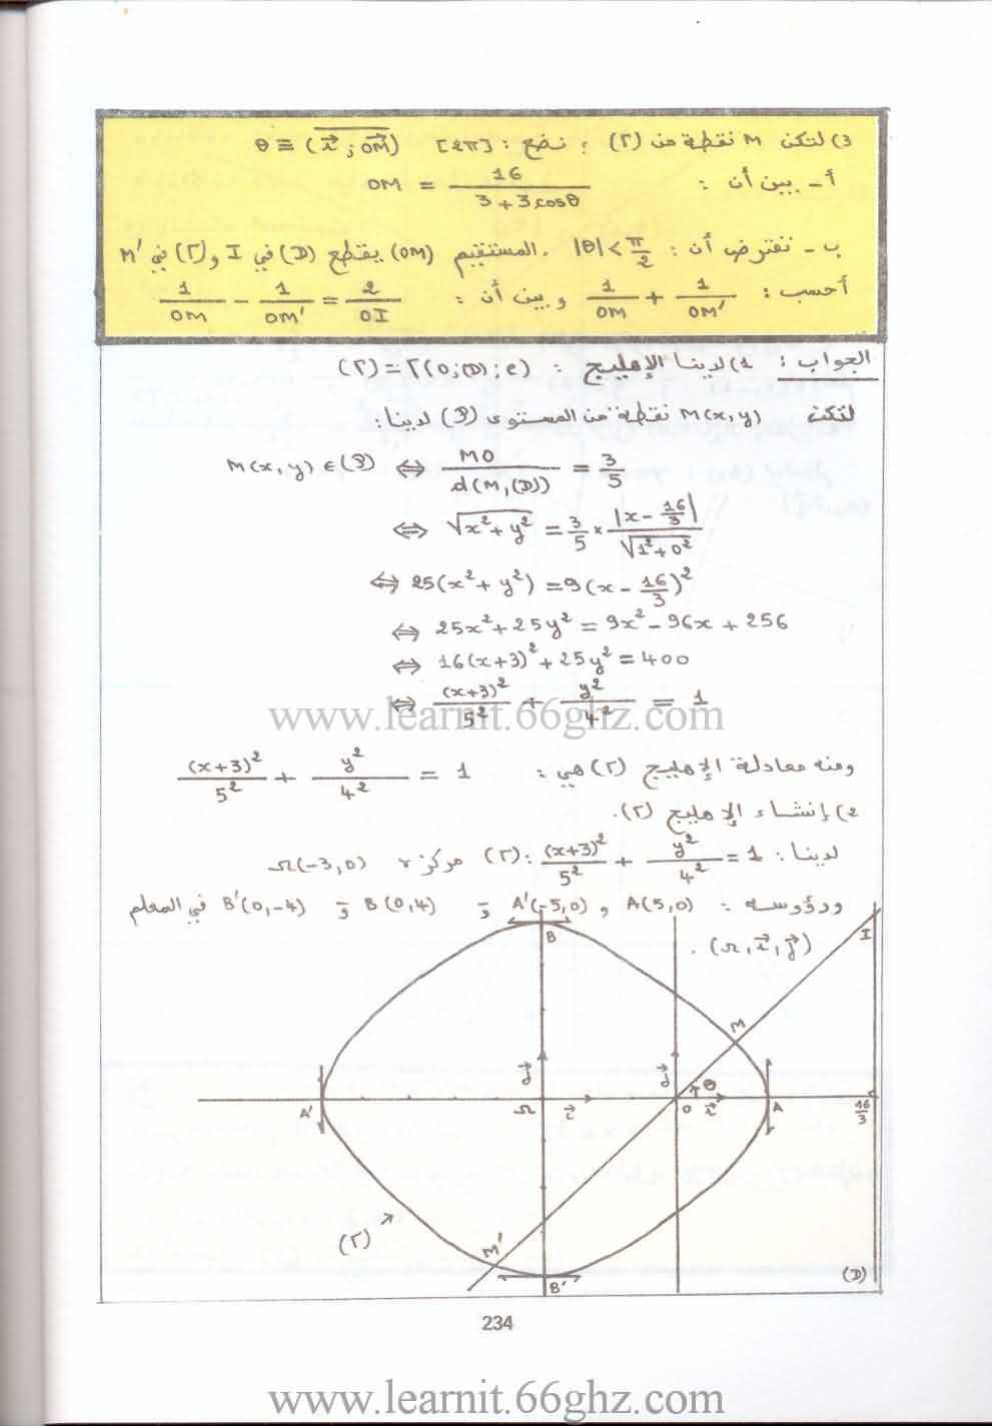 3) لتكن M نقطة من (Γ) ؛ نضع : θ ≡ (i⃗ ; OM⃗) [2π]
أ - بين أن : OM = 16 / (3 + 3cosθ)
ب - نفترض أن : |θ| < π/2 . المستقيم (OM) يقطع (D) في I و (Γ) في M'
أحسب : 1/OM' + 1/OM و بين أن : 1/OM - 1/OM' = 2/OI
الجواب : 1) لدينا الإهليج : (Γ) = Γ(O;(D);e)
لتكن M(x,y) نقطة من المستوى (P) لدينا:
M(x,y) ∈ (P) ⇔ MO / d(M,(D)) = 3/5
⇔ √(x² + y²) = 3/5 × |x - 16/3| / √(1² + 0²)
⇔ 25(x² + y²) = 9(x - 16/3)²
⇔ 25x² + 25y² = 9x² - 96x + 256
⇔ 16(x+3)² + 25y² = 400
⇔ (x+3)²/5² + y²/4² = 1
www.learnit.66ghz.com
ومنه معادلة الإهليج (Γ) هي : (x+3)²/5² + y²/4² = 1
2) إنشاء الإهليج (Γ).
لدينا : (Γ): (x+3)²/5² + y²/4² = 1 مركزه Ω(-3,0)
ورؤوسه : A(5,0) و A'(-5,0) و B(0,4) و B'(0,-4) في المعلم
(Ω, i⃗, j⃗) .
B
I
M
j⃗
j⃗
θ
A'
Ω
i⃗
O
i⃗
A
16/3
(Γ)
M'
B'
(D)
234
www.learnit.66ghz.com